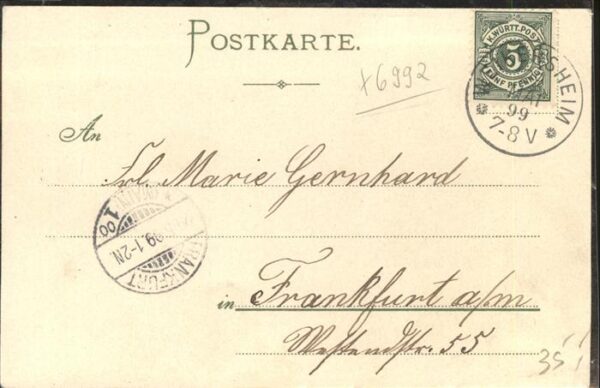 POSTKARTE.
K. WÜRTT. POST
5
FÜNF PFENNIG
SHEIM
MAI
99
7-8 V
x6992
An
Frl. Marie Gernhard
FRANKFURT
99.1-2N.
100
in Frankfurt a/m
Westendstr. 55
35